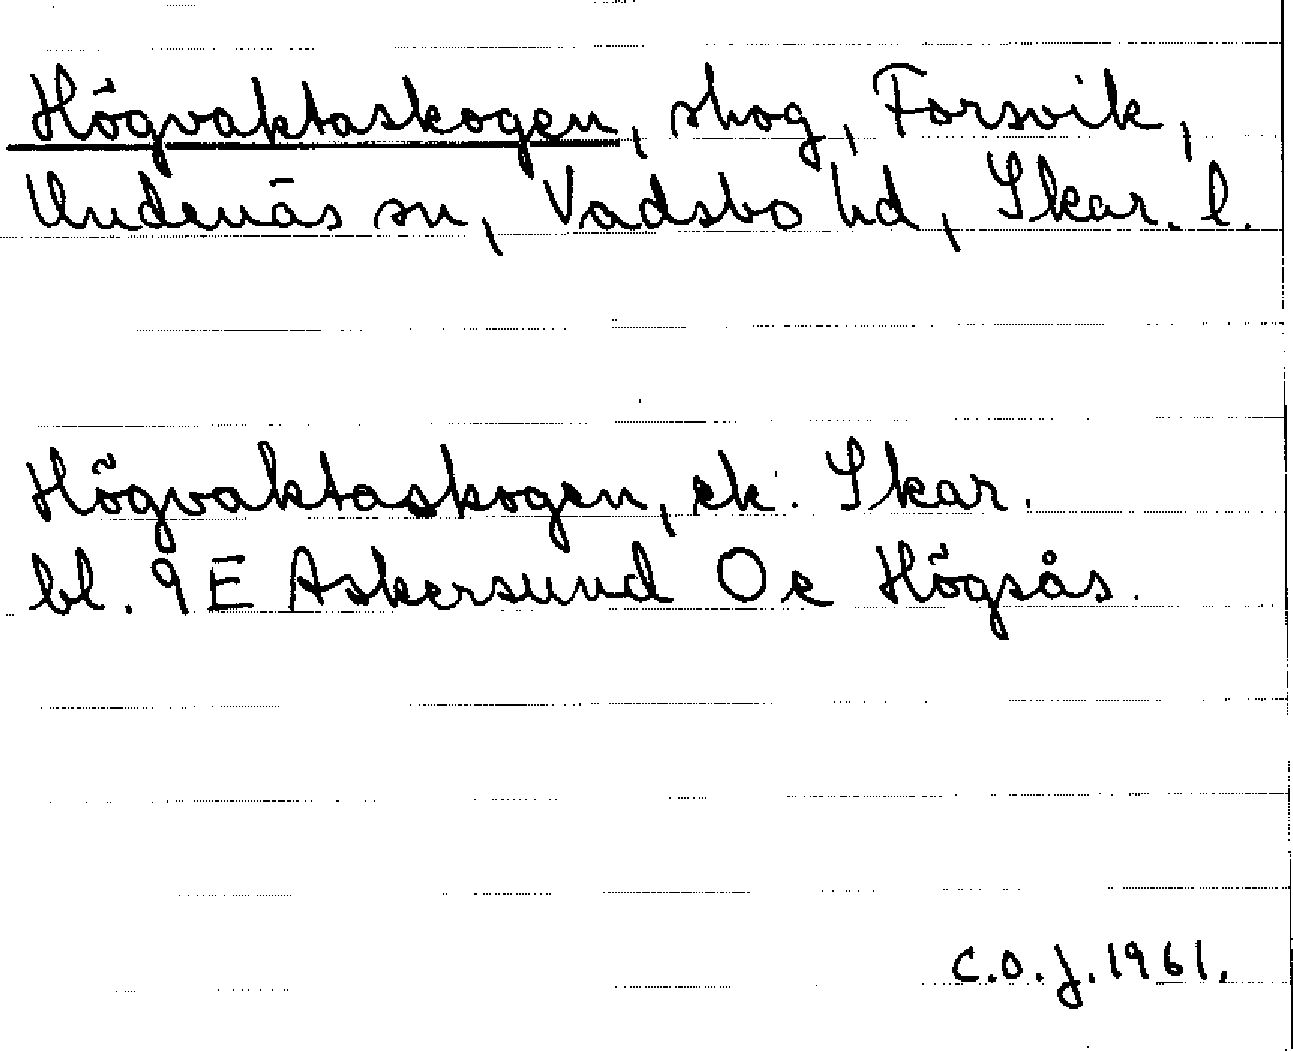 Högvaktaskogen, skog, Forsvik,
Undenäs sn, Vadsbo hd, Skar. l.
Högvaktaskogen, ek. Skar.
bl. 9 E Askersund O e Högsås.
C.O.J. 1961.